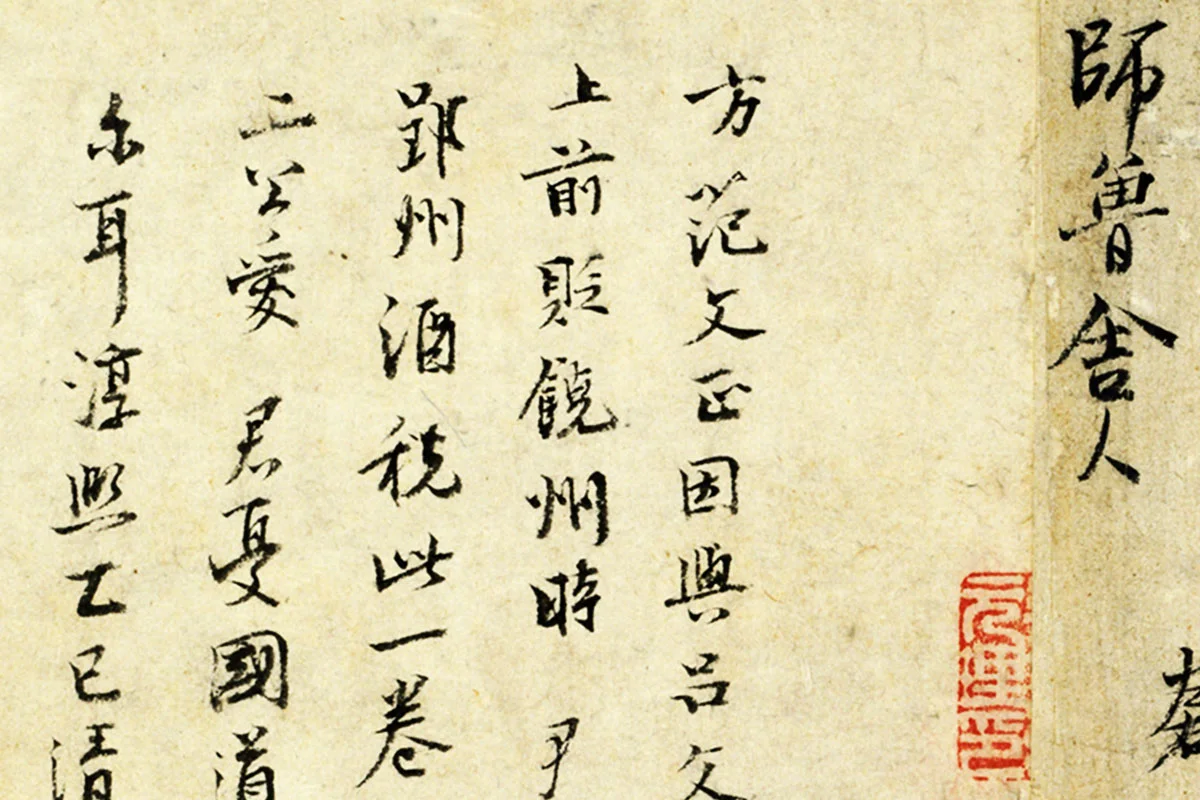 師魯舍人
方范文正因與呂文
上前貶饒州時 尹
郢州酒稅此一卷
二公愛 君憂國道
尔耳淳熙乙巳清